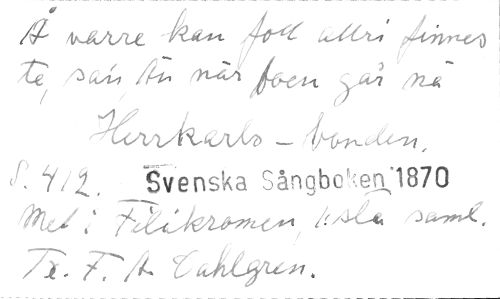 Å värre kan föll allri finnes
te, sa'n, än när boen går nå
Herrkarls-bonden.
S. 412. Svenska Sångboken 1870
Mel i Filikromen, 1:sta saml.
Tx. F. A. Dahlgren.